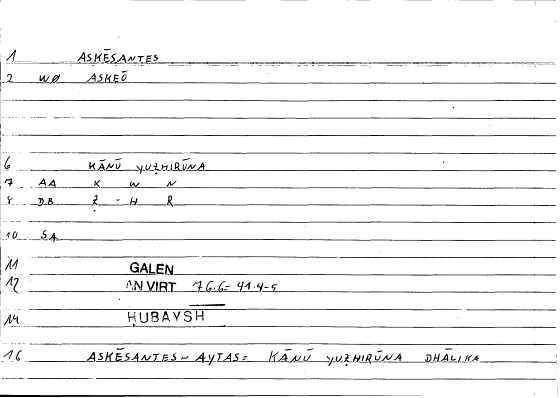 1 ASKĒSANTES
2 WØ ASKEŌ
6 KĀNŪ YUẒHIRŪNA
7 AA K W N
8 DB Ẓ - H R
10 SA
11 GALEN
12 AN VIRT 76.6= 41.4-5
14 ḤUBAYSH
16 ASKĒSANTES ~ AYTAS= KĀNŪ YUẒHIRŪNA DHĀLIKA